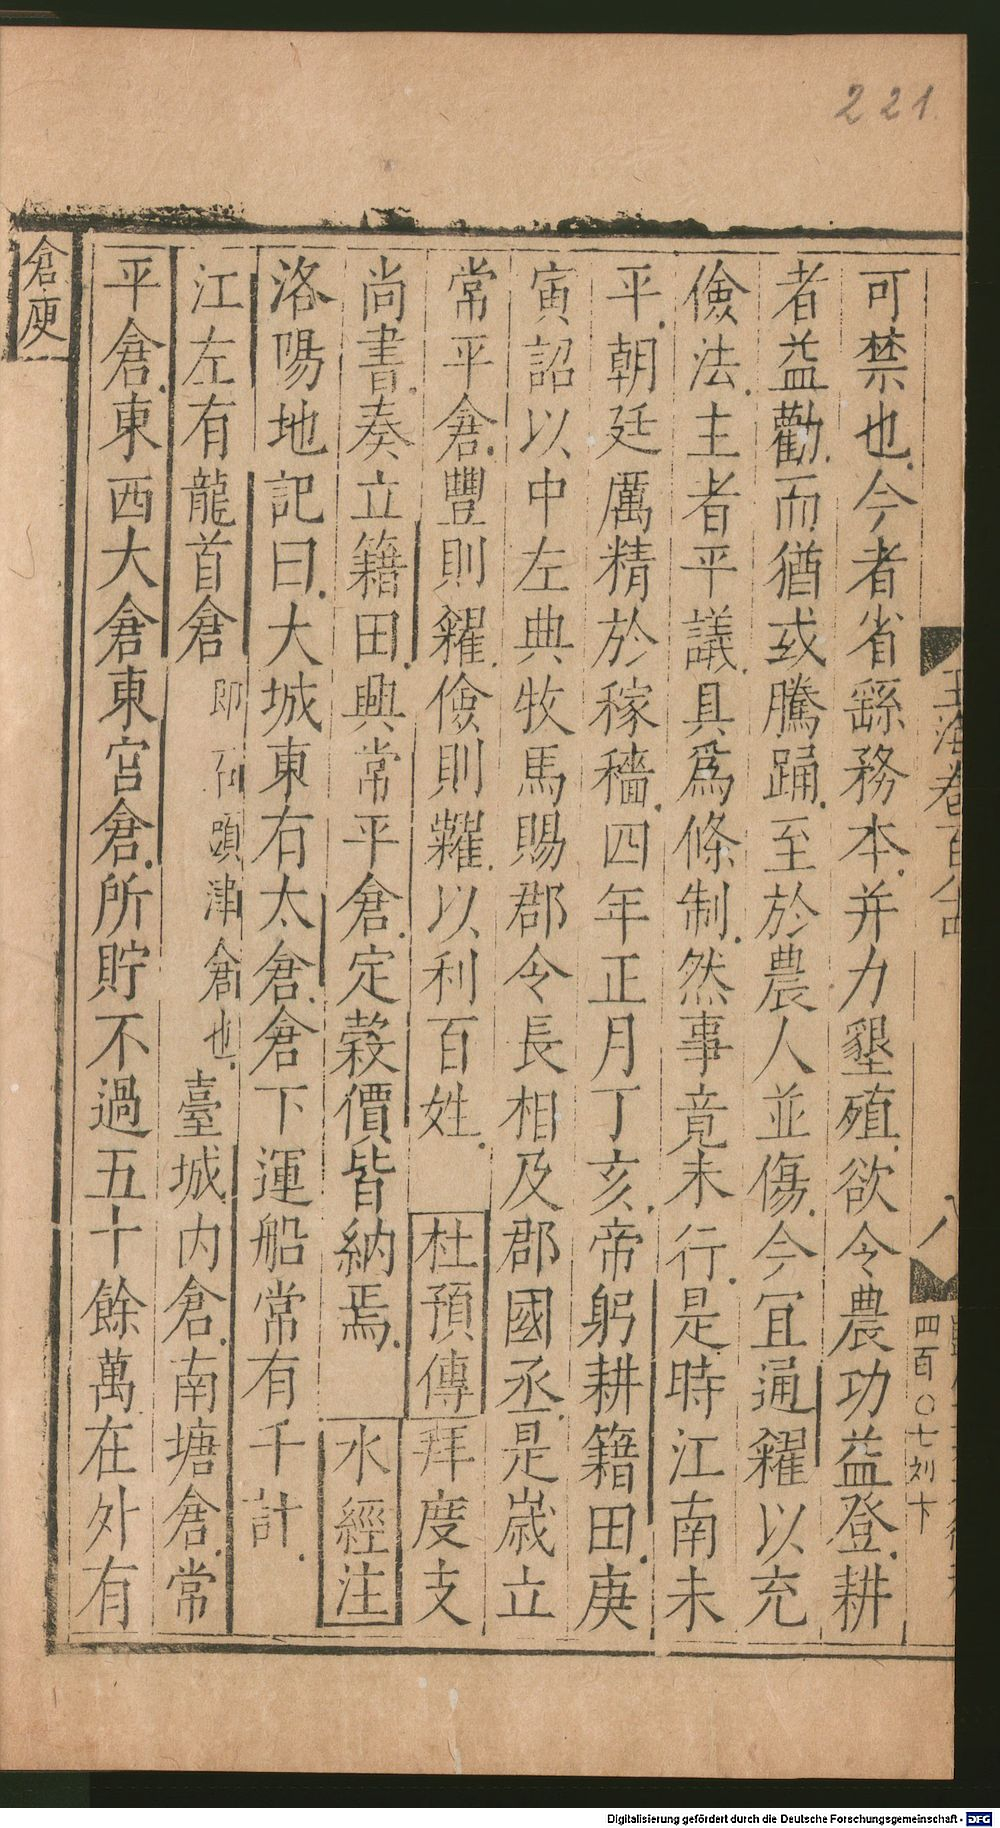 221
可禁也今者省繇務本并力墾殖欲令農功益登耕
者益勸而猶或騰踊至於農人並傷今宜通糴以充
儉法主者平議具爲條制然事竟未行是時江南未
平朝廷厲精於稼穡四年正月丁亥帝躬耕籍田庚
寅詔以中左典牧馬賜郡令長相及郡國丞是歲立
常平倉豐則糴儉則糶以利百姓杜預傳拜度支
尚書奏立籍田興常平倉定穀價皆納焉水經注
洛陽地記曰大城東有太倉倉下運船常有千計
江左有龍首倉即石頭津倉也臺城内倉南塘倉常
平倉東西大倉東宫倉所貯不過五十餘萬在外有
倉庾
玉海卷百八
四百〇七刘卞
Digitalisierung gefördert durch die Deutsche Forschungsgemeinschaft - DFG